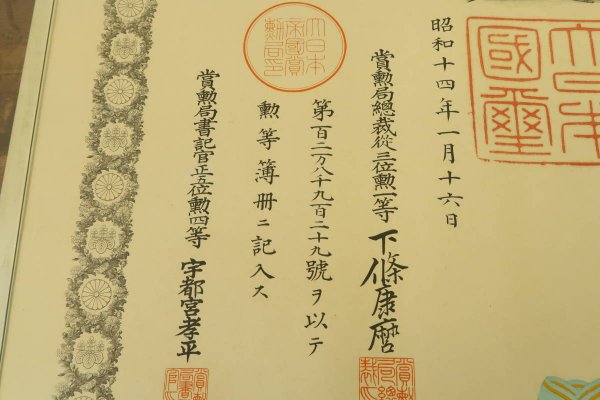 大日本國璽
昭和十四年一月十六日
賞勲局總裁從三位勲一等 下條康麿
第百二万八千九百二十九號ヲ以テ
勲等簿册ニ記入ス
賞勲局書記官正五位勲四等 宇都宮孝平
大日本帝國賞勲局印